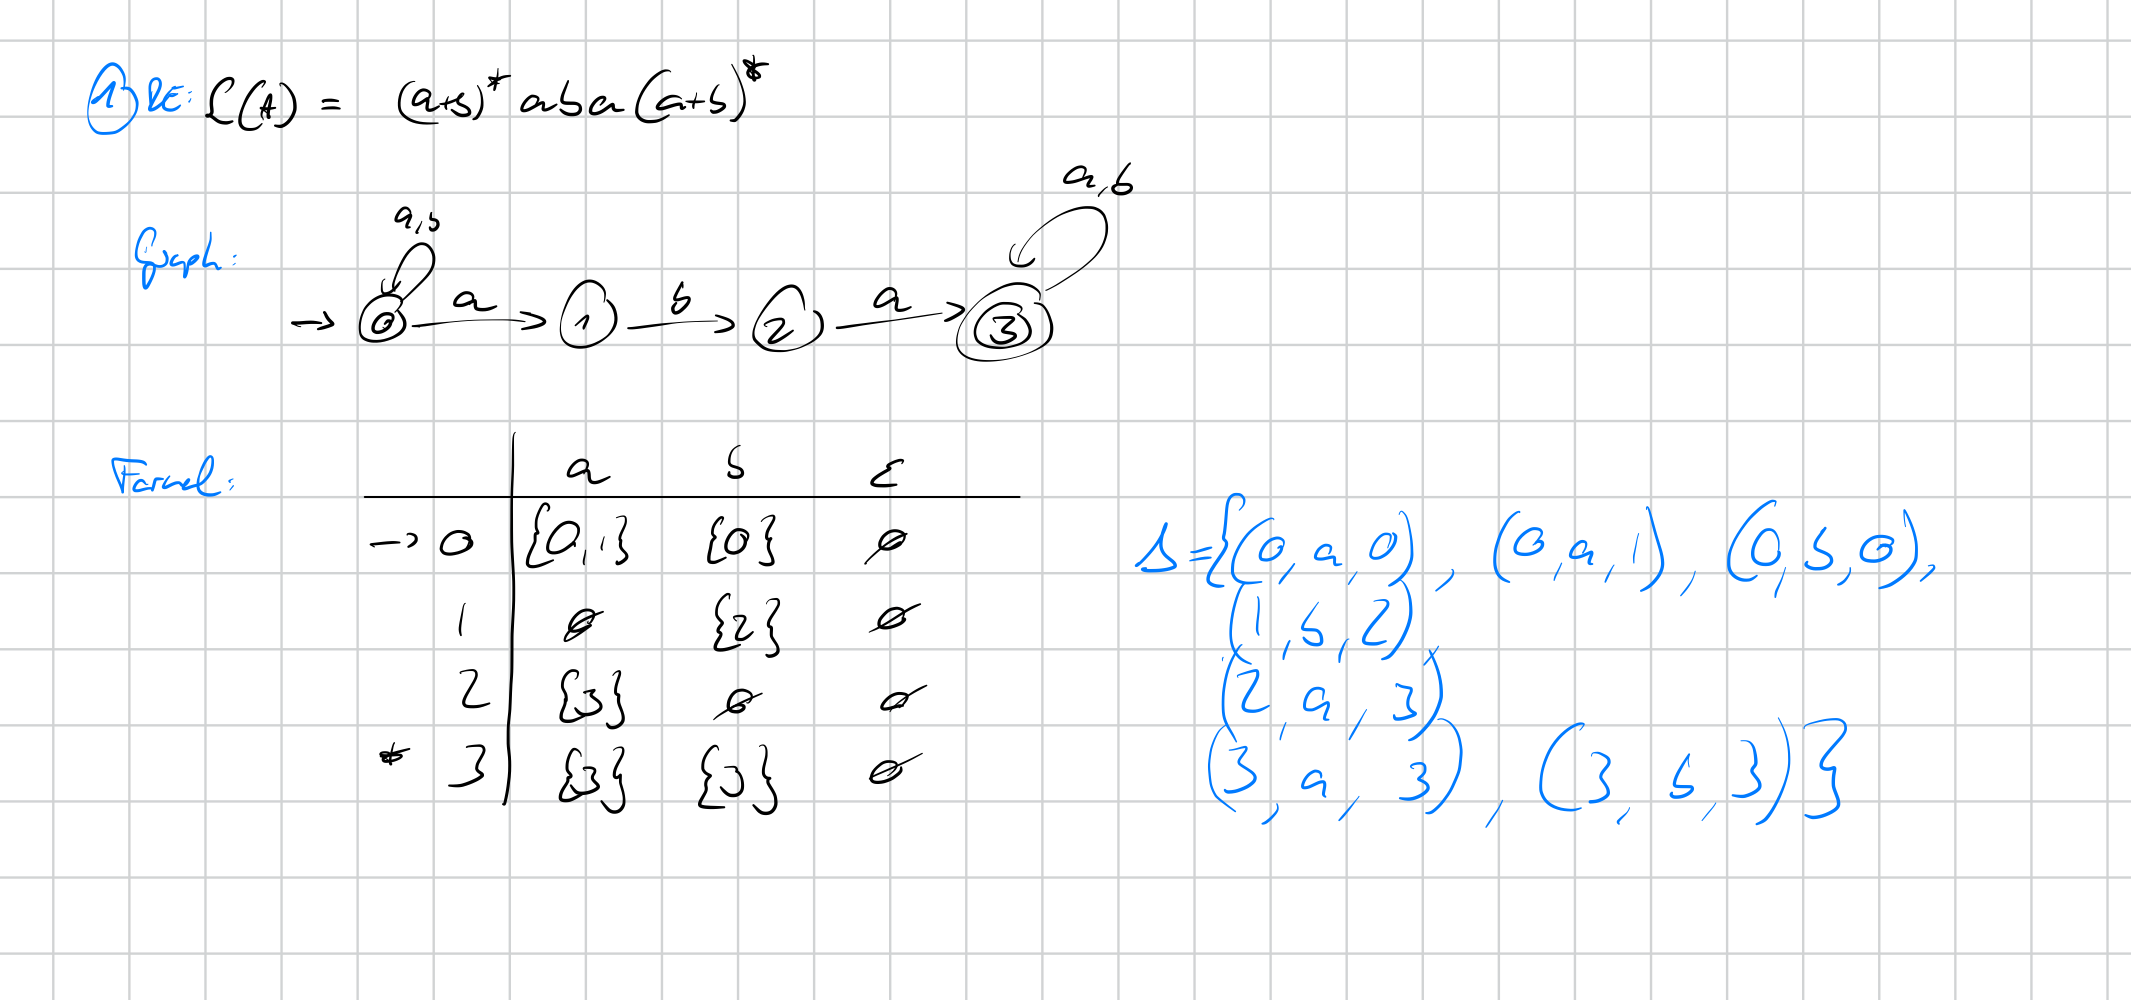 ① RE: L(A) = (a+b)* aba(a+b)*
a,b
a,b
Graph:
→ 0 a 1 b 2 a 3
Formal:
a b ε
→ 0 {0,1} {0} ∅
1 ∅ {2} ∅
2 {3} ∅ ∅
* 3 {3} {3} ∅
Δ={(0,a,0), (0,a,1), (0,b,0),
(1,b,2),
(2,a,3)
(3,a,3), (3,b,3)}